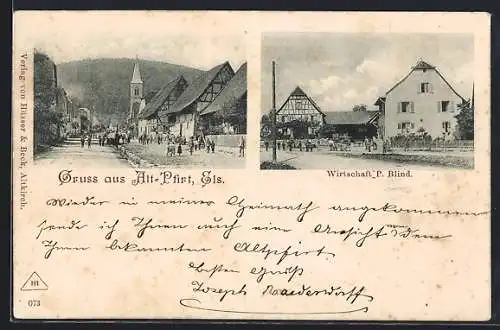 Verlag von Hüsser & Beck, Altkirch.
Gruss aus Alt-Pfirt, Els.
Wirtschaft P. Blind.
Wieder in meiner Heimath angekommen
sende ich Ihnen auch eine Ansicht von dem
Ihnen bekannten Altpfirt
Besten Gruß
Joseph
HI
073